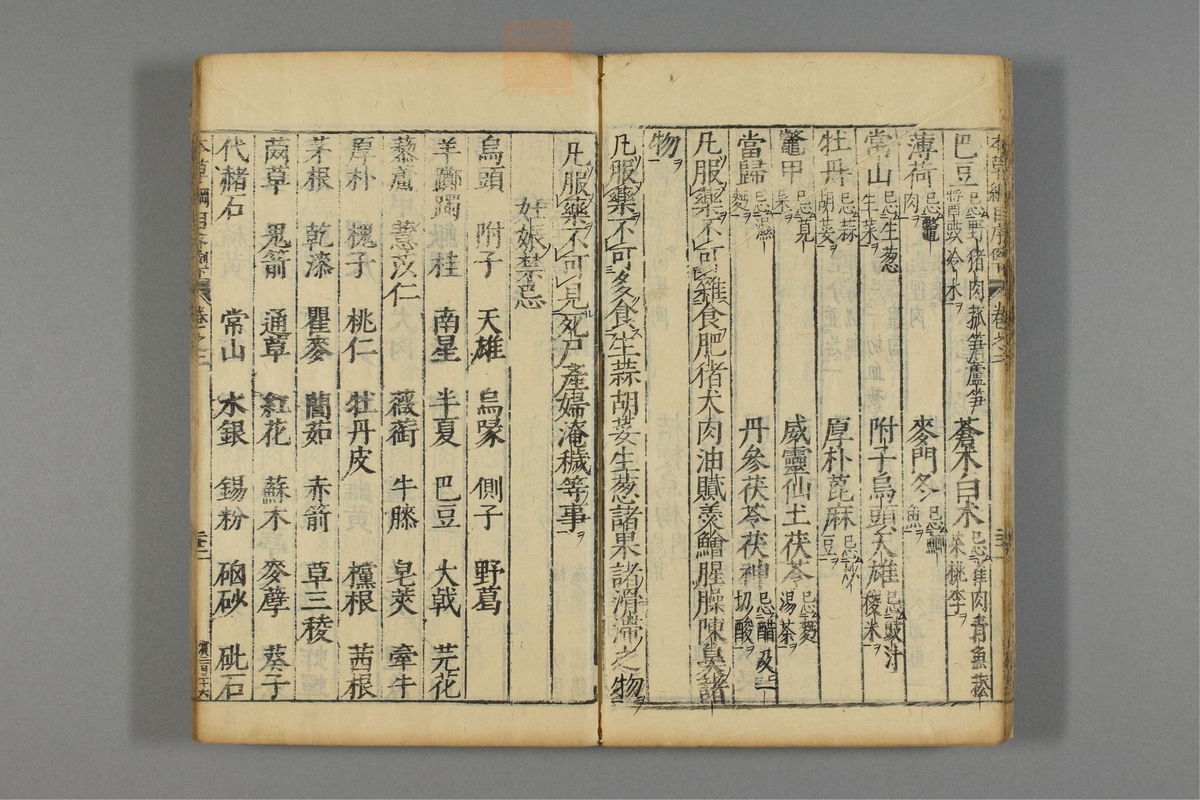 巴豆 忌野猪肉菰笋蘆笋醬豉冷水 蒼朮白朮 忌雀肉青魚菘菜桃李
薄荷 忌鱉肉 麥門冬 忌鯽魚
常山 忌生葱生菜 附子烏頭天雄 忌豉汁稷米
牡丹 忌蒜胡荽 厚朴蓖麻 忌炒豆
鱉甲 忌莧菜 威靈仙土茯苓 忌麪湯茶
當歸 忌濕麪 丹參茯苓茯神 忌醋及一切酸
凡服藥不可雜食肥猪犬肉油膩羹鱠腥臊陳臭諸
物
凡服藥不可多食生蒜胡荽生葱諸果諸滑滯之物
凡服藥不可見死尸產婦淹穢等事
妊娠禁忌
烏頭 附子 天雄 烏喙 側子 野葛
羊躑躅 桂 南星 半夏 巴豆 大戟 芫花
藜蘆 薏苡仁 薇銜 牛膝 皂莢 牽牛
厚朴 槐子 桃仁 牡丹皮 欓根 茜根
茅根 乾漆 瞿麥 䕡茹 赤箭 草三稜
䒽草 鬼箭 通草 紅花 蘇木 麥蘖 葵子
代赭石 常山 水銀 錫粉 硇砂 砒石